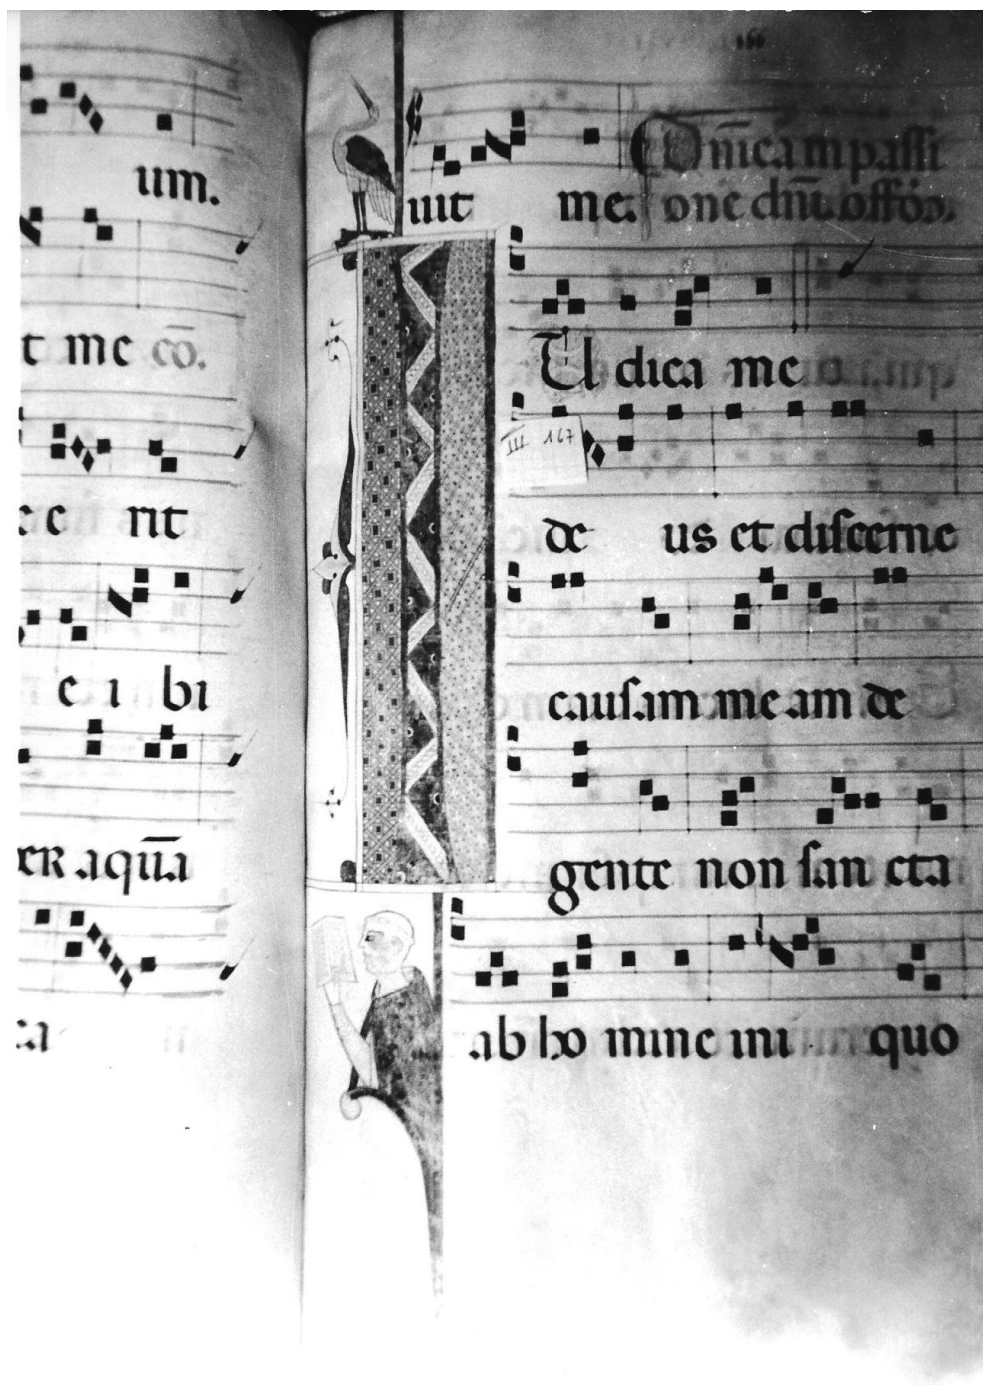 um.
t me cō.
e e rit
e i bi
er aquā
ca
166
uit me. Dn̄ica in passi
one dn̄i. offō.
U dica me
III 167
de us et discerne
causam me am de
gente non san cta
ab ho mine ini quo